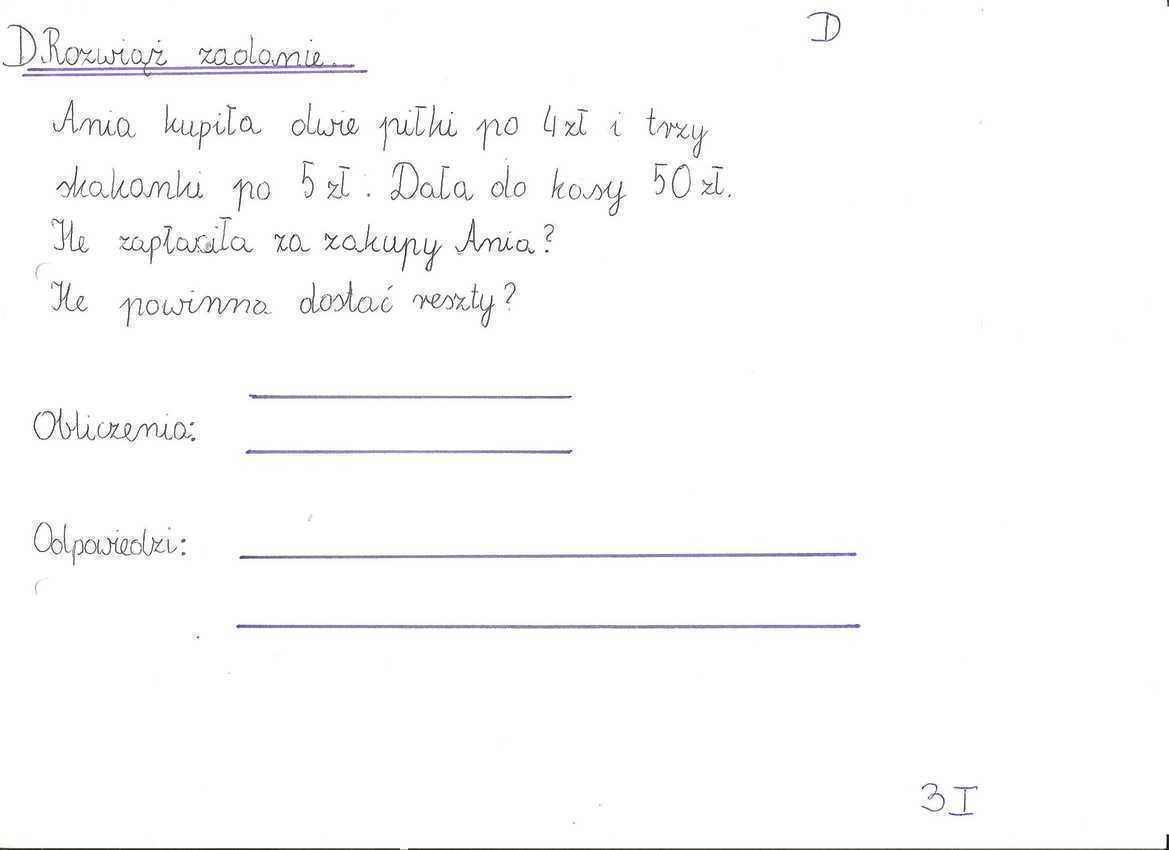 D
D. Rozwiąż zadanie.
Ania kupiła dwie piłki po 4 zł i trzy
skakanki po 5 zł. Dała do kasy 50 zł.
Ile zapłaciła za zakupy Ania?
Ile powinna dostać reszty?
Obliczenia:
Odpowiedzi:
3 I